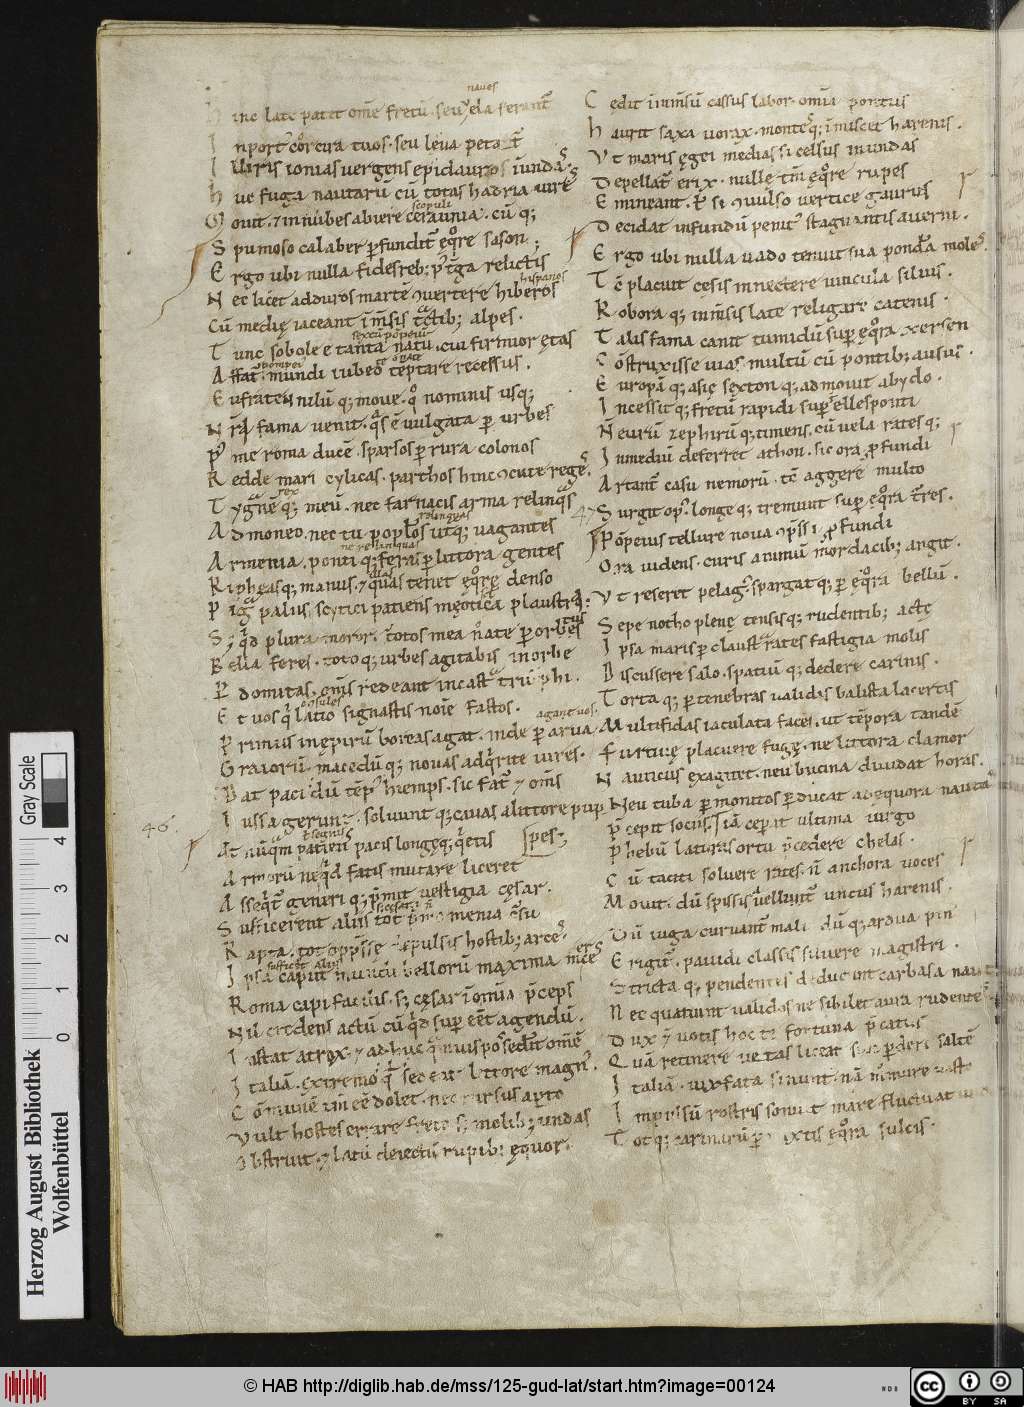 naues
hinc late patet om̄e fretū. seu uela ferant̄
Inport᷒ corcira tuos. seu leua petat̄
Illiris ionias uergens epidaurus ī undas
huc fuga nautarū cū totas hadria uires
scopuli
Mouit. ⁊ in nubes abiere ceraunia. cū q;
Spumoso calaber ꝑfundit᷑ ęq̊re sason;
Ergo ubi nulla fides reb; p᷒ t̄ga relictis
hispanos
Nec licet ad duros martē ꝯuertere hiberos
Cū medię iaceant īm̄sis t̄ctib; alpes.
sextū pōpeiū
Tunc sobole e tanta natū. cui firmior ętas
o pompei te o nate
Affat᷑. mundi iubeo tēptare recessus.
Eufraten nilū q; moue. q̊ nominis usq;
Nr̄i fama uenit. q̊s ē uulgata ꝑ urbes
P᷒ me roma ducē. sparsos ꝑ rura colonos
Redde mari cylicas. parthos hinc ꝯcute reges.
rex
Tygranē q; meū. nec farnacis arma relinq̊s
relinquas
Admoneo. nec tu popl̄os utq; uagantes
ne relinquas
Armenia. ponti q; feras ꝑ littora gentes
illas
Ripheasq; manus. ⁊ quas tenet ęq̊rę denso
Pigra palus scytici patiens męotica plaustri.
S; q̇d plura moror. totos mea nate ꝑ orbes
Bella feres. toto q; urbes agitabis in orbe
P domitas. om̄s redeant in casta triūphi.
ꝯsules
Et uos q̇ latio signastis noīe fastos.
agant uos
Primus in epirū boreas agat. inde ꝑ arua
Graiorū macedū q; nouas adq̇rite uires.
Dat paci dū tēp᷒ hiemps. sic fat᷑ ⁊ om̄s
Iussa gerunt. soluunt q; cauas a littore pup
46.
segnis
At nūq̄m patiens pacis longęq; q̇etis
pes;
Armorū ne q̇d fatis mutare liceret
Asseq̇t᷑ generi q; p̄mit uestigia cęsar.
Sufficerent aliis
Rapta. tot oppressę depulsis hostib; arces.
sufficet aliis
Ipsa caput mundi bellorū maxima mces
Roma capi facilis. s; cęsar ī omnia p̄ceps
Nil credens actū cū q̇d suꝑeēt agendū.
Instat atrox. ⁊ adhuc q̄muis possederit om̄ē
Italiā. extremo q̇ sedeat littore magn᷒.
Cōmunē tam̄ ēē dolet. nec rursus aꝑto
Vult hostes errare freto s; molib; undas
Obstruit. ⁊ latū deiectū rupib; ęquor.
Cedit ī im̄sū cassus labor. omnia pontus
haurit saxa uorax. monteq; īmiscet harenis.
Vt maris ęgei medias si celsus in undas
Depellat᷑ erix. nullę tam̄ ęq̊re rupes
Emineant. ut̄ si ꝯuulso uertice gaurus
Decidat in fundū penit᷒ stagnantis auerni.
Ergo ubi nulla uado tenuit sua pondera moles.
Tc̄ placuit cęsis innectere uincula siluis.
Robora q; īm̄sis late religare catenis.
Talis fama canit tumidū suꝑ ęq̊ra xersen
Cōstruxisse uias. multū cū pontib; ausus.
Europā q; asię sęxton q; admouit abydo.
Incessit q; fretū rapidi suꝑ ellesponti
Nn̄ eurū zephirū q; timens. cū uela rates q;
In mediū deferret athon. sic ora ꝓfundi
Artant᷑ casu nemorū. tc̄ aggere multo
47
Surgit op᷒. longę q; tremunt suꝑ ęq̊ra t̄res.
Pōpeius tellure noua ꝯpssi ꝓfundi
Ora uidens. curis animū mordacib; angit.
Vt reseret pelag᷒. spargat q; ꝑ ęq̊ra bellū.
Sepe notho plenę tensis q; rudentib; actę
Ipsa maris ꝑ claustra rates fastigia molis
Discussere salo. spatiū q; dedere carinis.
Torta q; ꝑ tenebras ualidis balista lacertis
Multifidas iaculata faces. ut tēpora tandē
Furtiuę placuere fugę. ne littora clamor
Nauticus exagitet. neu bucina diuidat horas.
Neu tuba ꝑ monitos ꝑducat ad equora nauta
P̄cepit sociis. iā ceperat ultima uirgo
Phebū laturas ortu p̄cedere chelas.
Cū taciti soluere rates. n̄ anchora uoces
Mouit. dū spissis uellunt᷑ uncus harenis.
Dū iuga curuant᷑ mali. dū q; ardua pin
Erigit᷑. pauidi classis siluere magistri.
Stricta q; pendentes deducunt carbasa naut
Nec quatiunt ualidos ne sibilet aura rudentes.
Dux ⁊ uotis hoc te fortuna p̄catus
Quā retinere uetas liceat sibi ꝑdere saltē
Italiā. uix fata sinunt. nā murmure uasto
Impulsū rostris sonuit mare fluctuat unda
Tot q; carinarū ꝑmixtis ęq̊ra sulcis.
Herzog August Bibliothek
Wolfenbüttel
Gray Scale
0 1 2 3 4
© HAB http://diglib.hab.de/mss/125-gud-lat/start.htm?image=00124
cc BY SA